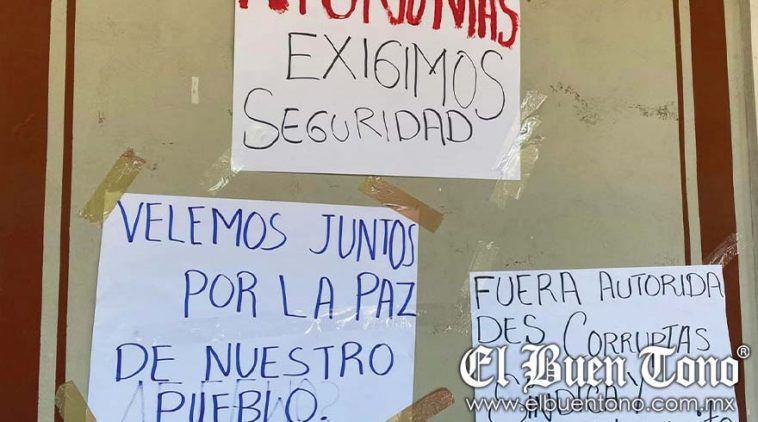 EXIGIMOS
SEGURIDAD
VELEMOS JUNTOS
POR LA PAZ
DE NUESTRO
PUEBLO.
FUERA AUTORIDA
DES CORRUPTAS
SINDICA Y
El Buen Tono®
www.elbuentono.com.mx